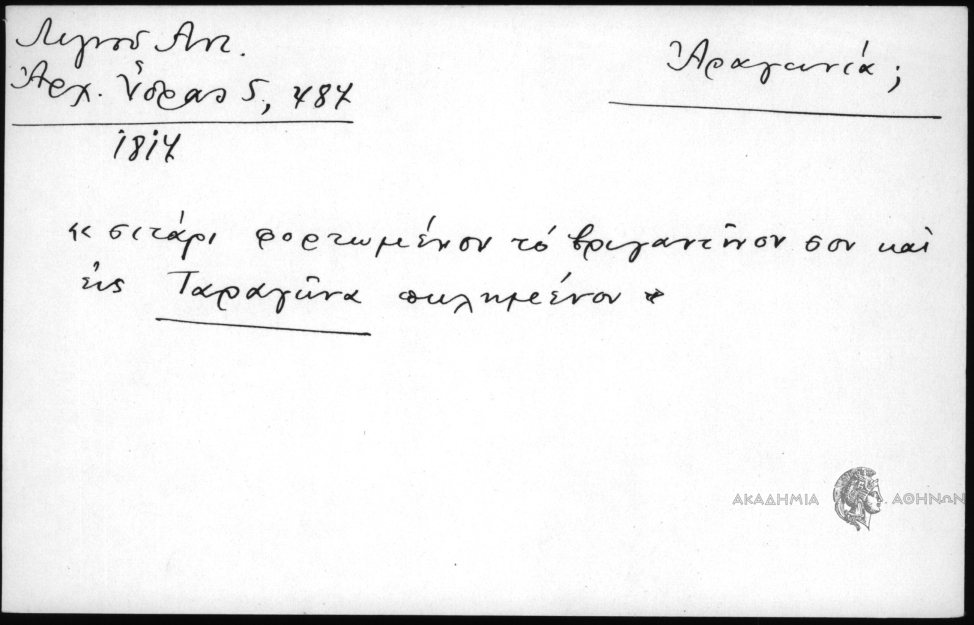 Λιγνοῦ Ἀντ.
Ἀρχ. Ὕδρας 5, 484
1814
Ἀραγωνία;
« σιτάρι φορτωμένον τό βριγαντῖνον σου καί
εἰς Ταραγῶνα πωλημένον »
ΑΚΑΔΗΜΙΑ ΑΘΗΝΩΝ